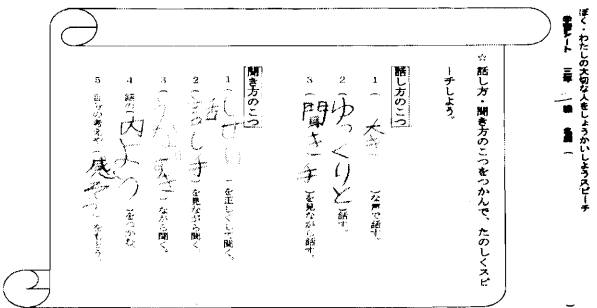 ぼく・わたしの大切な人をしょうかいしようスピーチ
学習シート 三年 組 名前（ ）
☆ 話し方・聞き方のこつをつかんで、たのしくスピーチしよう。
話し方のこつ
1 （大き）な声で話す。
2 （ゆっくりと）話す。
3 （聞き手）を見ながら話す。
聞き方のこつ
1 （しせい）を正しくして聞く。
2 （話し手）を見ながら聞く。
3 （うなずき）ながら聞く。
4 話の（内よう）をつかむ。
5 自分の考えや（感そう）をもとう。